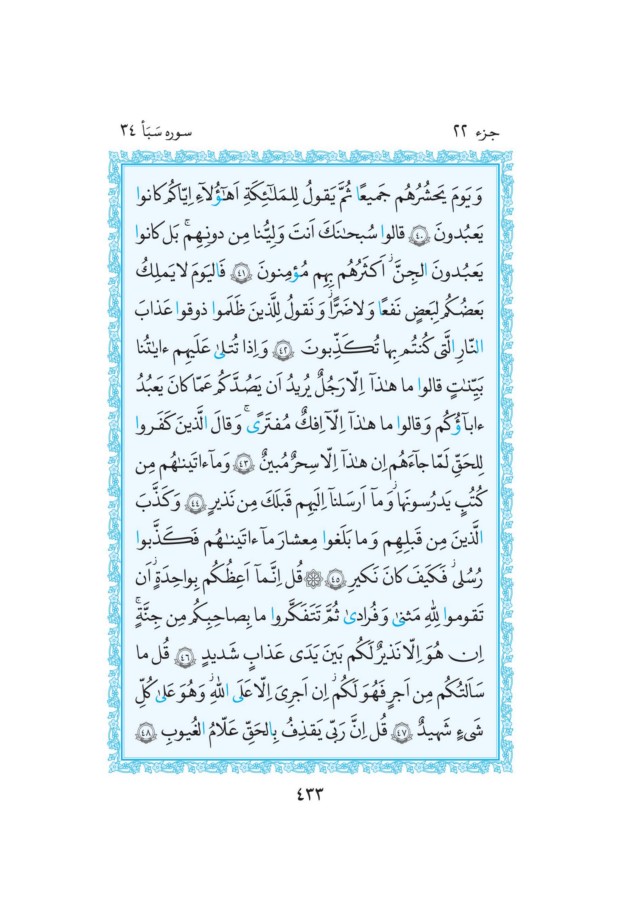 جزء ٢٢
سوره سَبَأ ٣٤
وَ يَومَ يَحشُرُهُم جَميعًا ثُمَّ يَقولُ لِلمَلـٰئِكَةِ اَهـٰؤُلاۤءِ اِيّاكُم كانوا
يَعبُدونَ ﴿٤٠﴾ قالوا سُبحـٰنَكَ اَنتَ وَلِيُّنا مِن دونِهِم ۖ بَل كانوا
يَعبُدونَ الجِنَّ ۖ اَكثَرُهُم بِهِم مُؤمِنونَ ﴿٤١﴾ فَاليَومَ لا يَملِكُ
بَعضُكُم لِبَعضٍ نَفعًا وَ لا ضَرًّا وَ نَقولُ لِلَّذينَ ظَلَموا ذوقوا عَذابَ
النّارِ الَّتى كُنتُم بِها تُكَذِّبونَ ﴿٤٢﴾ وَ اِذا تُتلىٰ عَلَيهِم ءايـٰتُنا
بَيِّنـٰتٍ قالوا ما هـٰذاۤ اِلّا رَجُلٌ يُريدُ اَن يَصُدَّكُم عَمّا كانَ يَعبُدُ
ءاباۤؤُكُم وَ قالوا ما هـٰذاۤ اِلّاۤ اِفكٌ مُفتَرًى ۚ وَ قالَ الَّذينَ كَفَروا
لِلحَقِّ لَمّا جاۤءَهُم اِن هـٰذاۤ اِلّا سِحرٌ مُبينٌ ﴿٤٣﴾ وَ ماۤ ءاتَينـٰهُم مِن
كُتُبٍ يَدرُسونَها ۖ وَ ماۤ اَرسَلناۤ اِلَيهِم قَبلَكَ مِن نَذيرٍ ﴿٤٤﴾ وَ كَذَّبَ
الَّذينَ مِن قَبلِهِم وَ ما بَلَغوا مِعشارَ ماۤ ءاتَينـٰهُم فَكَذَّبوا
رُسُلى ۖ فَكَيفَ كانَ نَكيرِ ﴿٤٥﴾ ۞ قُل اِنَّماۤ اَعِظُكُم بِواحِدَةٍ ۖ اَن
تَقوموا لِلّٰهِ مَثنىٰ وَ فُرادىٰ ثُمَّ تَتَفَكَّروا ما بِصاحِبِكُم مِن جِنَّةٍ ۚ
اِن هُوَ اِلّا نَذيرٌ لَكُم بَينَ يَدَى عَذابٍ شَديدٍ ﴿٤٦﴾ قُل ما
سَاَلتُكُم مِن اَجرٍ فَهُوَ لَكُم ۖ اِن اَجرِىَ اِلّا عَلَى اللّٰهِ ۖ وَ هُوَ عَلىٰ كُلِّ
شَىءٍ شَهيدٌ ﴿٤٧﴾ قُل اِنَّ رَبّى يَقذِفُ بِالحَقِّ عَلّامُ الغُيوبِ ﴿٤٨﴾
٤٣٣